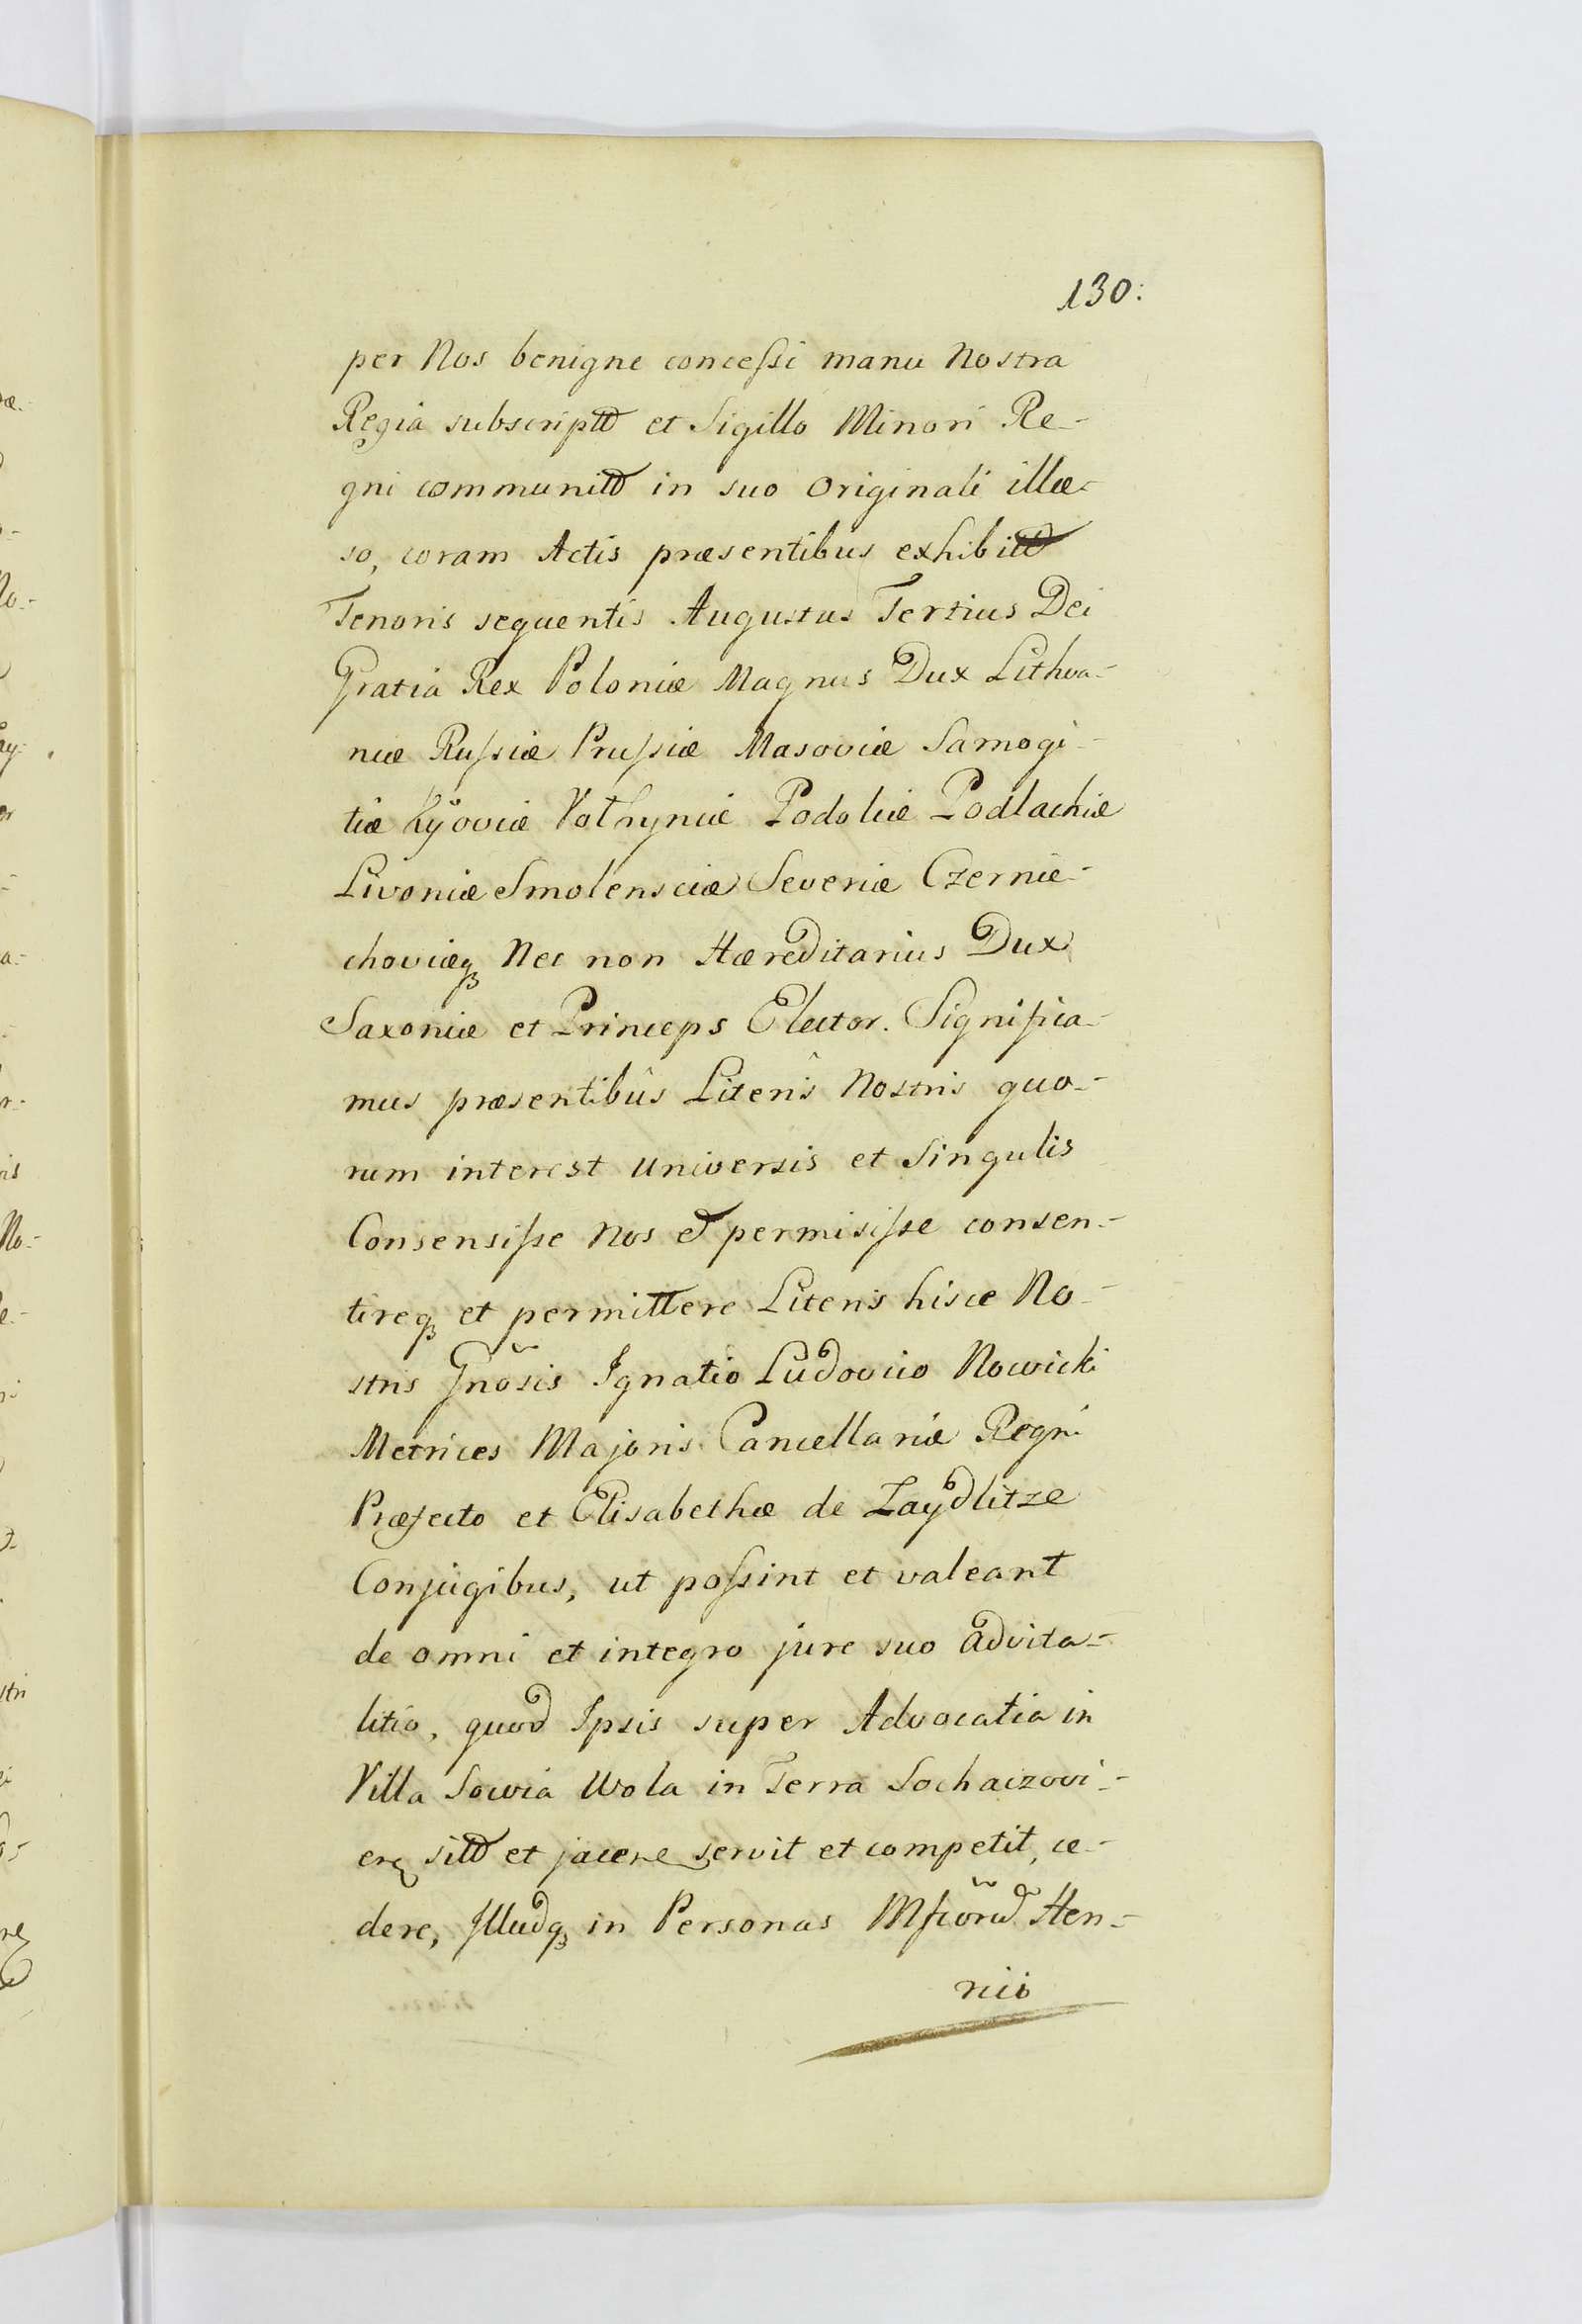 130.
per Nos benigne concessi manu Nostra
Regia subscript et Sigillo Minori Re-
gni communit in suo Originali illæ-
so, coram Actis præsentibus exhibit
Tenoris sequentis Augustus Tertius Dei
Gratia Rex Poloniæ Magnus Dux Lithva-
niæ Russiæ Prussiæ Masoviæ Samogi-
tiæ Kÿoviæ Volhyniæ Podoliæ Podlachiæ
Livoniæ Smolensciæ Severiæ Czernie-
choviæq Nec non Hæreditarius Dux
Saxoniæ et Princeps Elector. Significa-
mus præsentibûs Literîs Nostris quo-
rum interest Universis et Singulis
Consensisse Nos et permisisse consen-
tireq et permittere Literis hisce No-
stris Gnosis Ignatio Ludovico Nowicki
Metrices Majoris Cancellariæ Regni
Præfecto et Elisabethæ de Zaydlitze
Conjugibus, ut possint et valeant
de omni et integro jure suo advita-
litio, quod Ipsis super Advocatia in
Villa Sowia Wola in Terra Sochaczovi-
en sit et jacen servit et competit, ce-
dere, Illudq in Personas Mficorum Hen-
rici